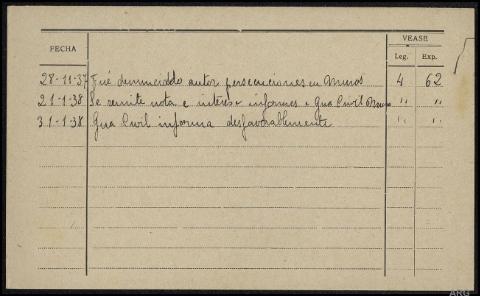 FECHA
VEASE
Leg. Exp.
28-11-37 Fué denunciado autor persecuciones en Muros 4 62
21-1-38 Se remite nota e interes informes a Gua Civil " "
31-1-38 Gua Civil informa desfavorablemente " "
ARG